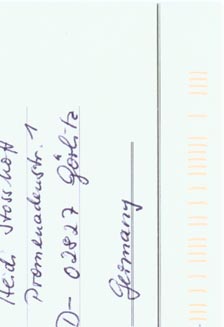 Heidi Stosshoff
Promenadenstr. 1
D-02827 Görlitz
Germany